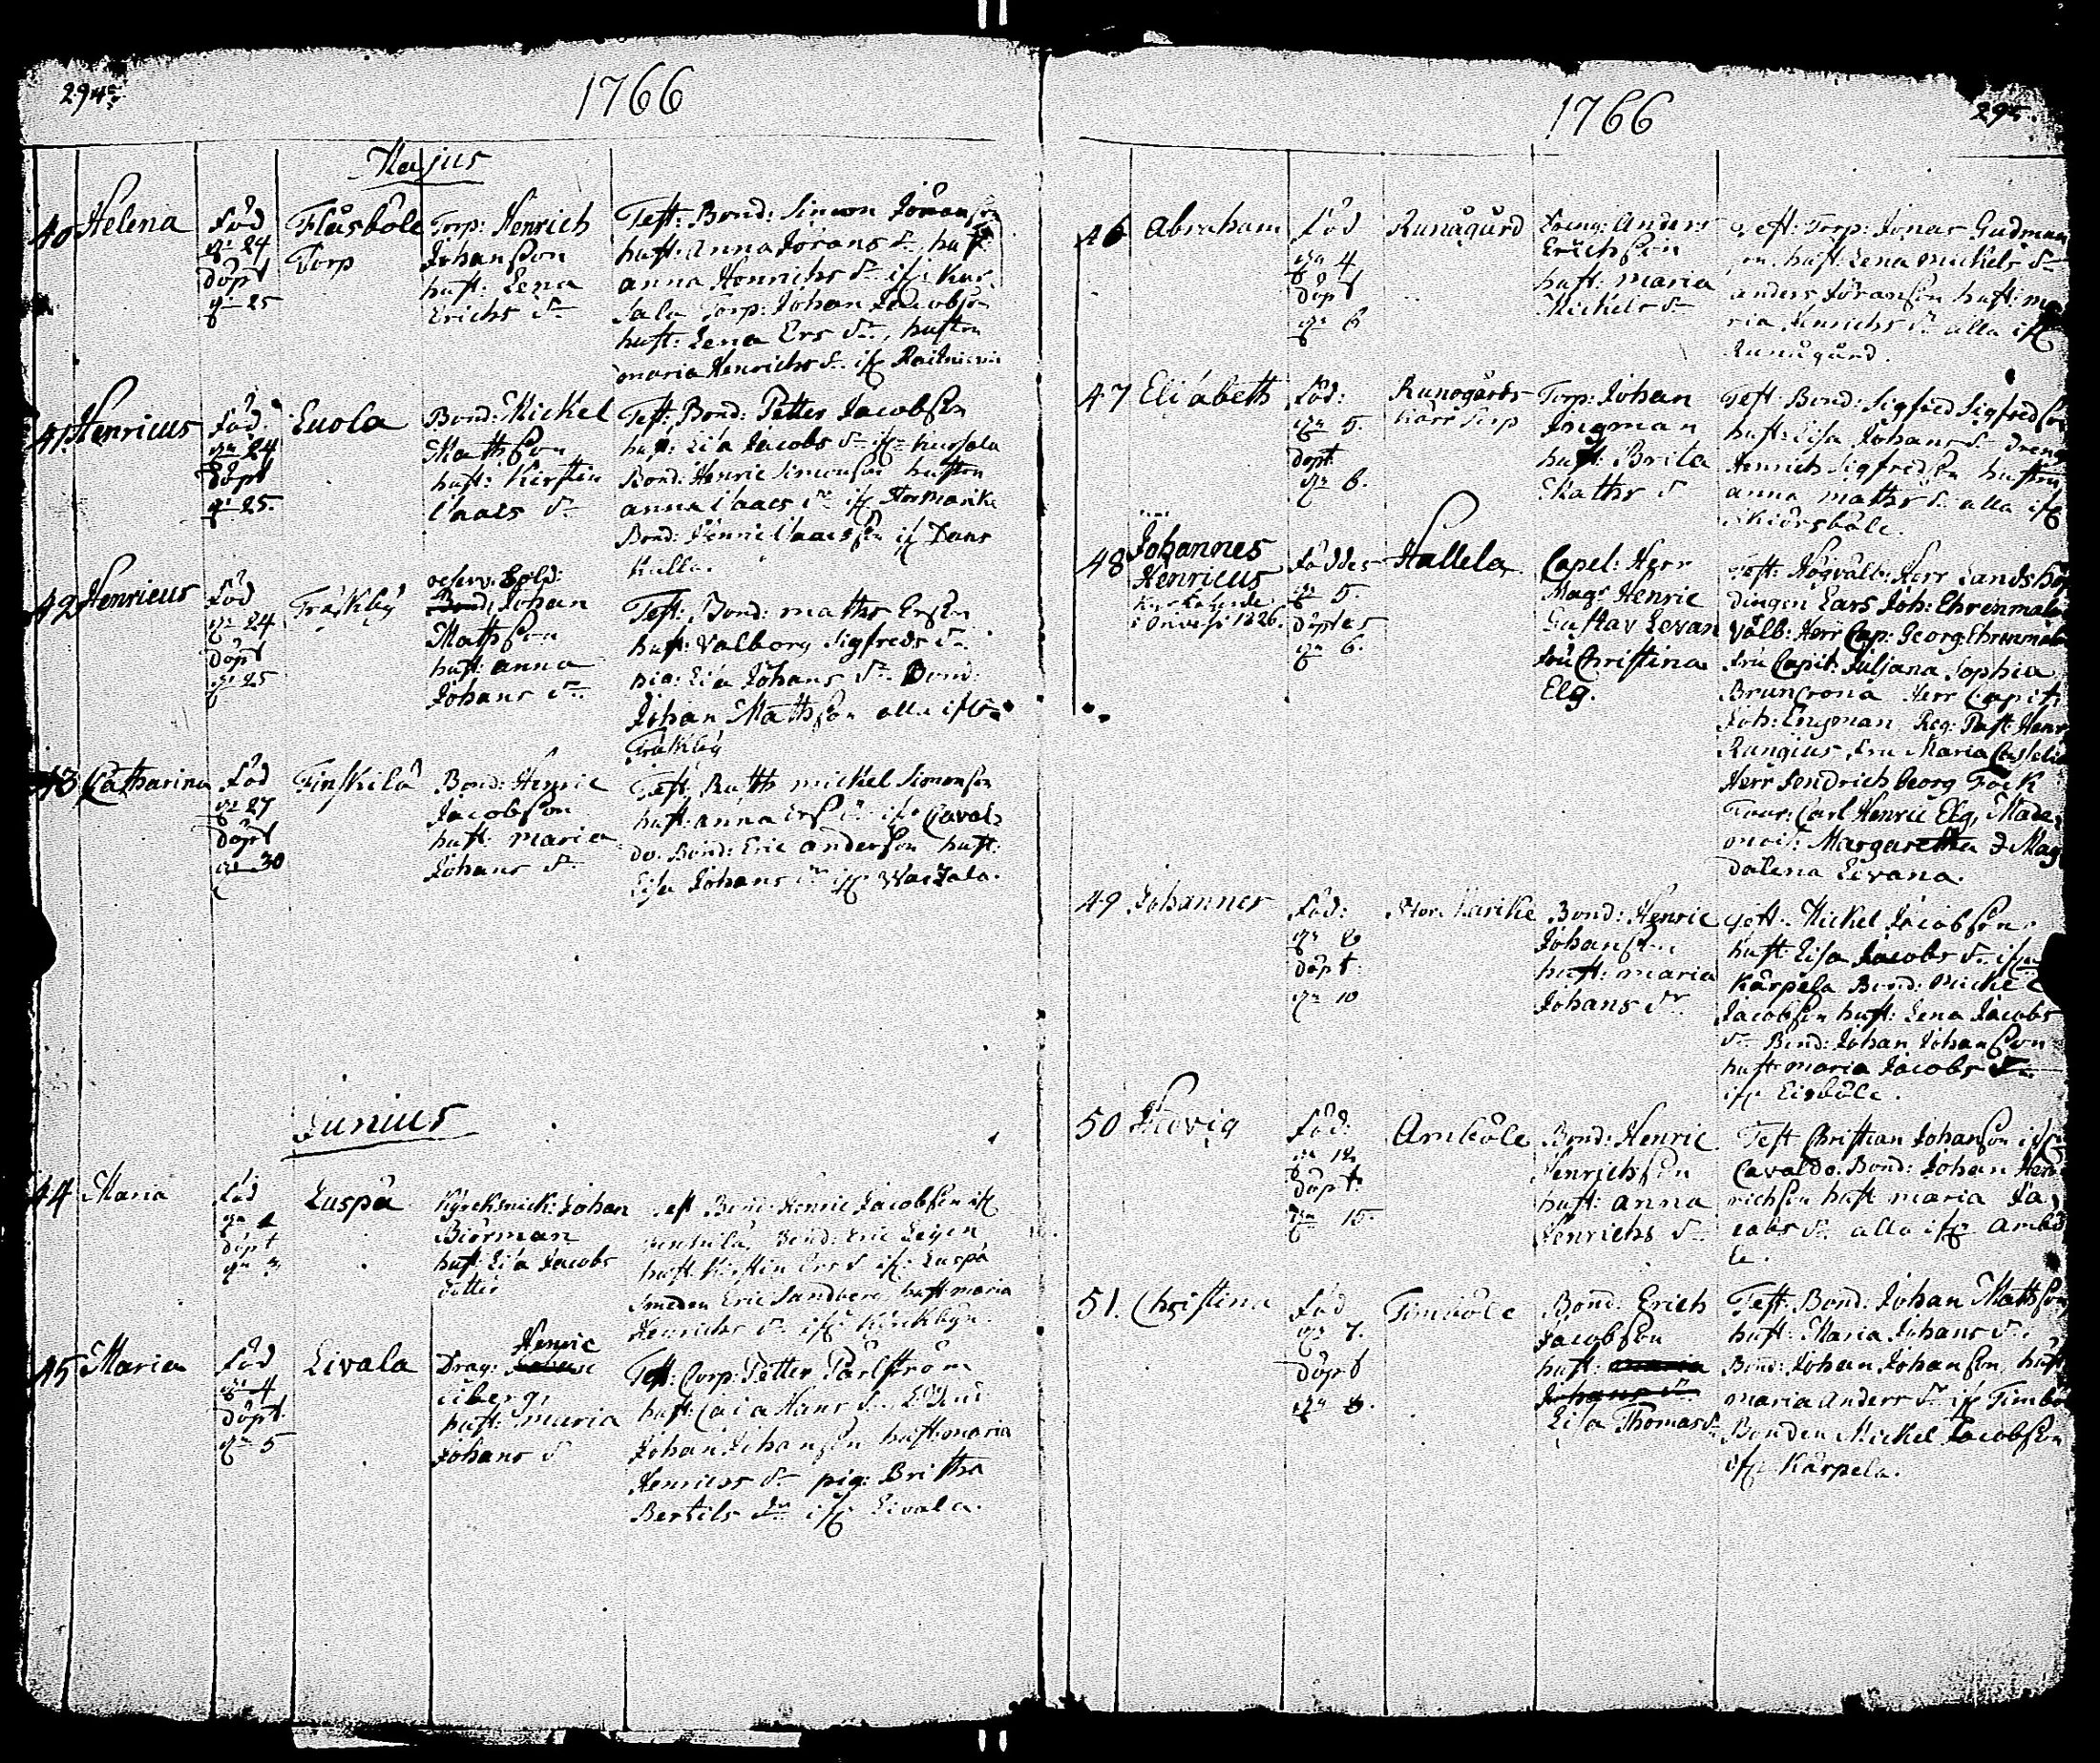 294
1766
Majus
40 Helena
Född
d. 24
döpt
d. 25
Flåsböle
Torp
Torp: Henrich
Johansson
hust: Lena
Erichs dr
Test: Bond: Simon Jöransson
hust: Anna Jörans dr, hust:
anna Henrichs dr if: Kur
sala Torp: Johan Jacobson
hust: Lena Ers dr, hustru
maria Henrichs dr if:
41 Henricus
Född
d. 24
döpt
d. 25.
Euola
Bond: Mickel
Mathsson
hust: Kirstin
Claaes dr
Test: Bond: Petter Jacobsson
hust: Lisa Jacobs dr if: Kursala
Bond: Henric Simonsson hustru
anna Claaes dr if: Stormarike
Bond: Henric Claaesson if: Dans
Kulla.
42 Henricus
Född
d. 24
döpt
d. 25
Träskby
reserv. Sold:
Bond: Johan
Mathsson
hust: anna
Johans dr
Test: Bond: maths Ersson
hust: Valborg Sigfreds dr
pig: Lisa Johans dr Bond:
Johan Mathsson alla if:
Träskby
43 Catharina
Född
d. 27
döpt
d. 30
Finskilå
Bond: Henric
Jacobsson
hust: maria
Johans dr
Test, Rusth mickel Simonsson
hust: anna Ers dr if: Caval
do. Bond: Eric anderson hust:
Lisa Johans dr if: Wackala.
Junius
44 Maria
Född
döpt
Luspå
Kyrcksmick: Johan
Biörman
hust: Lisa Jacobs
dotter
Test Bond: Henric Jacobsson if:
Finskilå, Bond: Eric
hust: Kirstin Ers d if: Luspå
Smeden Eric Sandberg, hust: maria
Henrichs dr if: Kirckbyn.
45 Maria
Född
d. 4
döpt
d. 5
Livala
Henric
Drag:
hust: maria
Johans d
Test: Corp: Petter Pärlström
hust: Caisa Hans dr
Johan Johansson hust: maria
Henrics dr pig: Britha
Bertils dr if: Livala.
295.
1766
46 Abraham
Född
d. 4
döpt
d. 6
Runågård
Dreng: Anders
Erichsson
hust: maria
Mickels dr
Test: Torp: Jonas Gudman
hust: Lena mickels dr
anders Jöransson hust: ma
ria Henrichs dr alla if:
Runågård.
47 Elisabeth
Föd:
d. 5.
döpt
d. 6.
Runogårds
Kärr Torp
Torp: Johan
hust: Brita
Maths d
Test: Bond: Sigfred Sigfredsson
hust: Lisa Johans dr Dreng
Henrich Sigfredsson hustru
anna maths dr alla if:
Skiörsböle.
48 Johannes
Henricus
1826.
Föddes
d. 5.
döptes
d. 6.
Hallela
Capel: Herr
Mags Henric
Gustav Levan
fru Christina
Elg.
Test: Högvälb: Herr Landshöf
dingen Lars Joh: Ehrenmalm
välb: Herr Cap: Georg Ehrenmalm
fru Capit: Juliana Sophia
Bruncrona Herr Capit:
Joh: Engman, Reg: Past: Henr
Rungius, fru Maria
Herr Fendrich Georg Fock
Carl Henric Elg, Made
mois: Margaretha & Mag
dalena Levana.
49 Johannes
Föd:
döpt
d. 10
Stor Sarike
Bond: Henric
Johansson
hust: maria
Johans dr
Test: Mickel Jacobsson
hust: Lisa Jacobs dr if:
Kårpela Bond: Mickel
Jacobsson hust: Lena Jacobs
dr Bond: Johan Johansson
hust: maria Jacobs dr
if: Lisböle.
50 Hedvig
Föd:
d. 12
döpt
d. 15.
Arnböle
Bond: Henric
Henrichsson
hust: anna
Henrichs dr
Test Christian Johansson if:
Cavaldo. Bond: Johan Hen
richsson hust maria Ja
cobs dr alla if: Arnbö
le.
51. Christina
Föd
d. 7.
döpt
d. 8.
Timböle
Bond: Erich
Jacobsson
hust: maria
Johans dr
Lisa Thomas dr
Test: Bond: Johan Mathsson
hust: Maria Johans dr
Bond: Johan Johansson hust
maria Anders dr if: Timbö
Bonden Mickel Jacobsson
if: Kårpela.